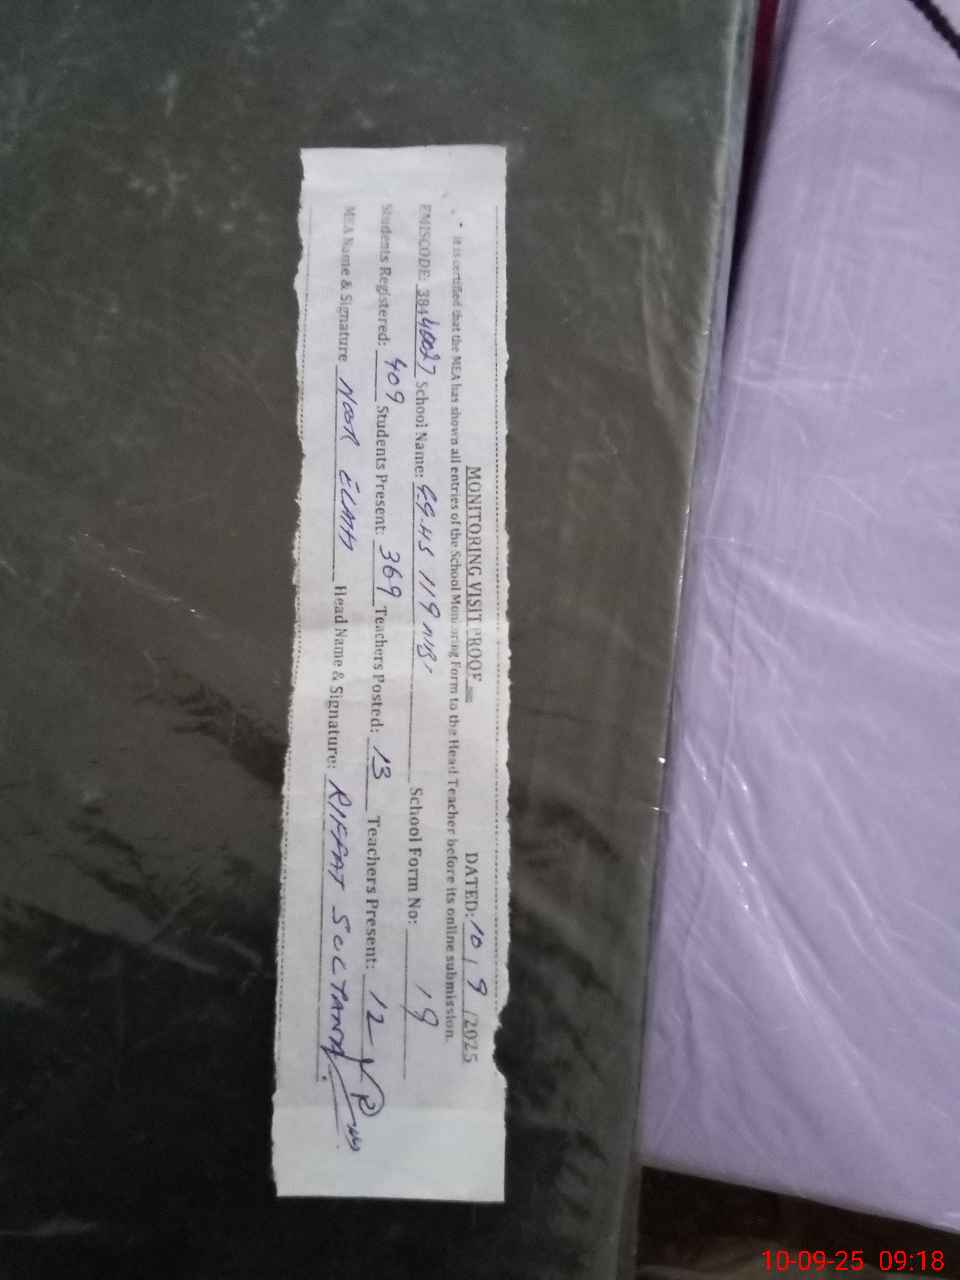 MONITORING VISIT PROOF DATED: 10 / 9 /2025
It is certified that the MEA has shown all entries of the School Monitoring Form to the Head Teacher before its online submission.
EMISCODE: 38440027 School Name: G.G.HS 119 NB. School Form No: 19
Students Registered: 409 Students Present: 369 Teachers Posted: 13 Teachers Present: 12
MEA Name & Signature NOOR ELAHI Head Name & Signature: RIFFAT SULTANA
10-09-25 09:18